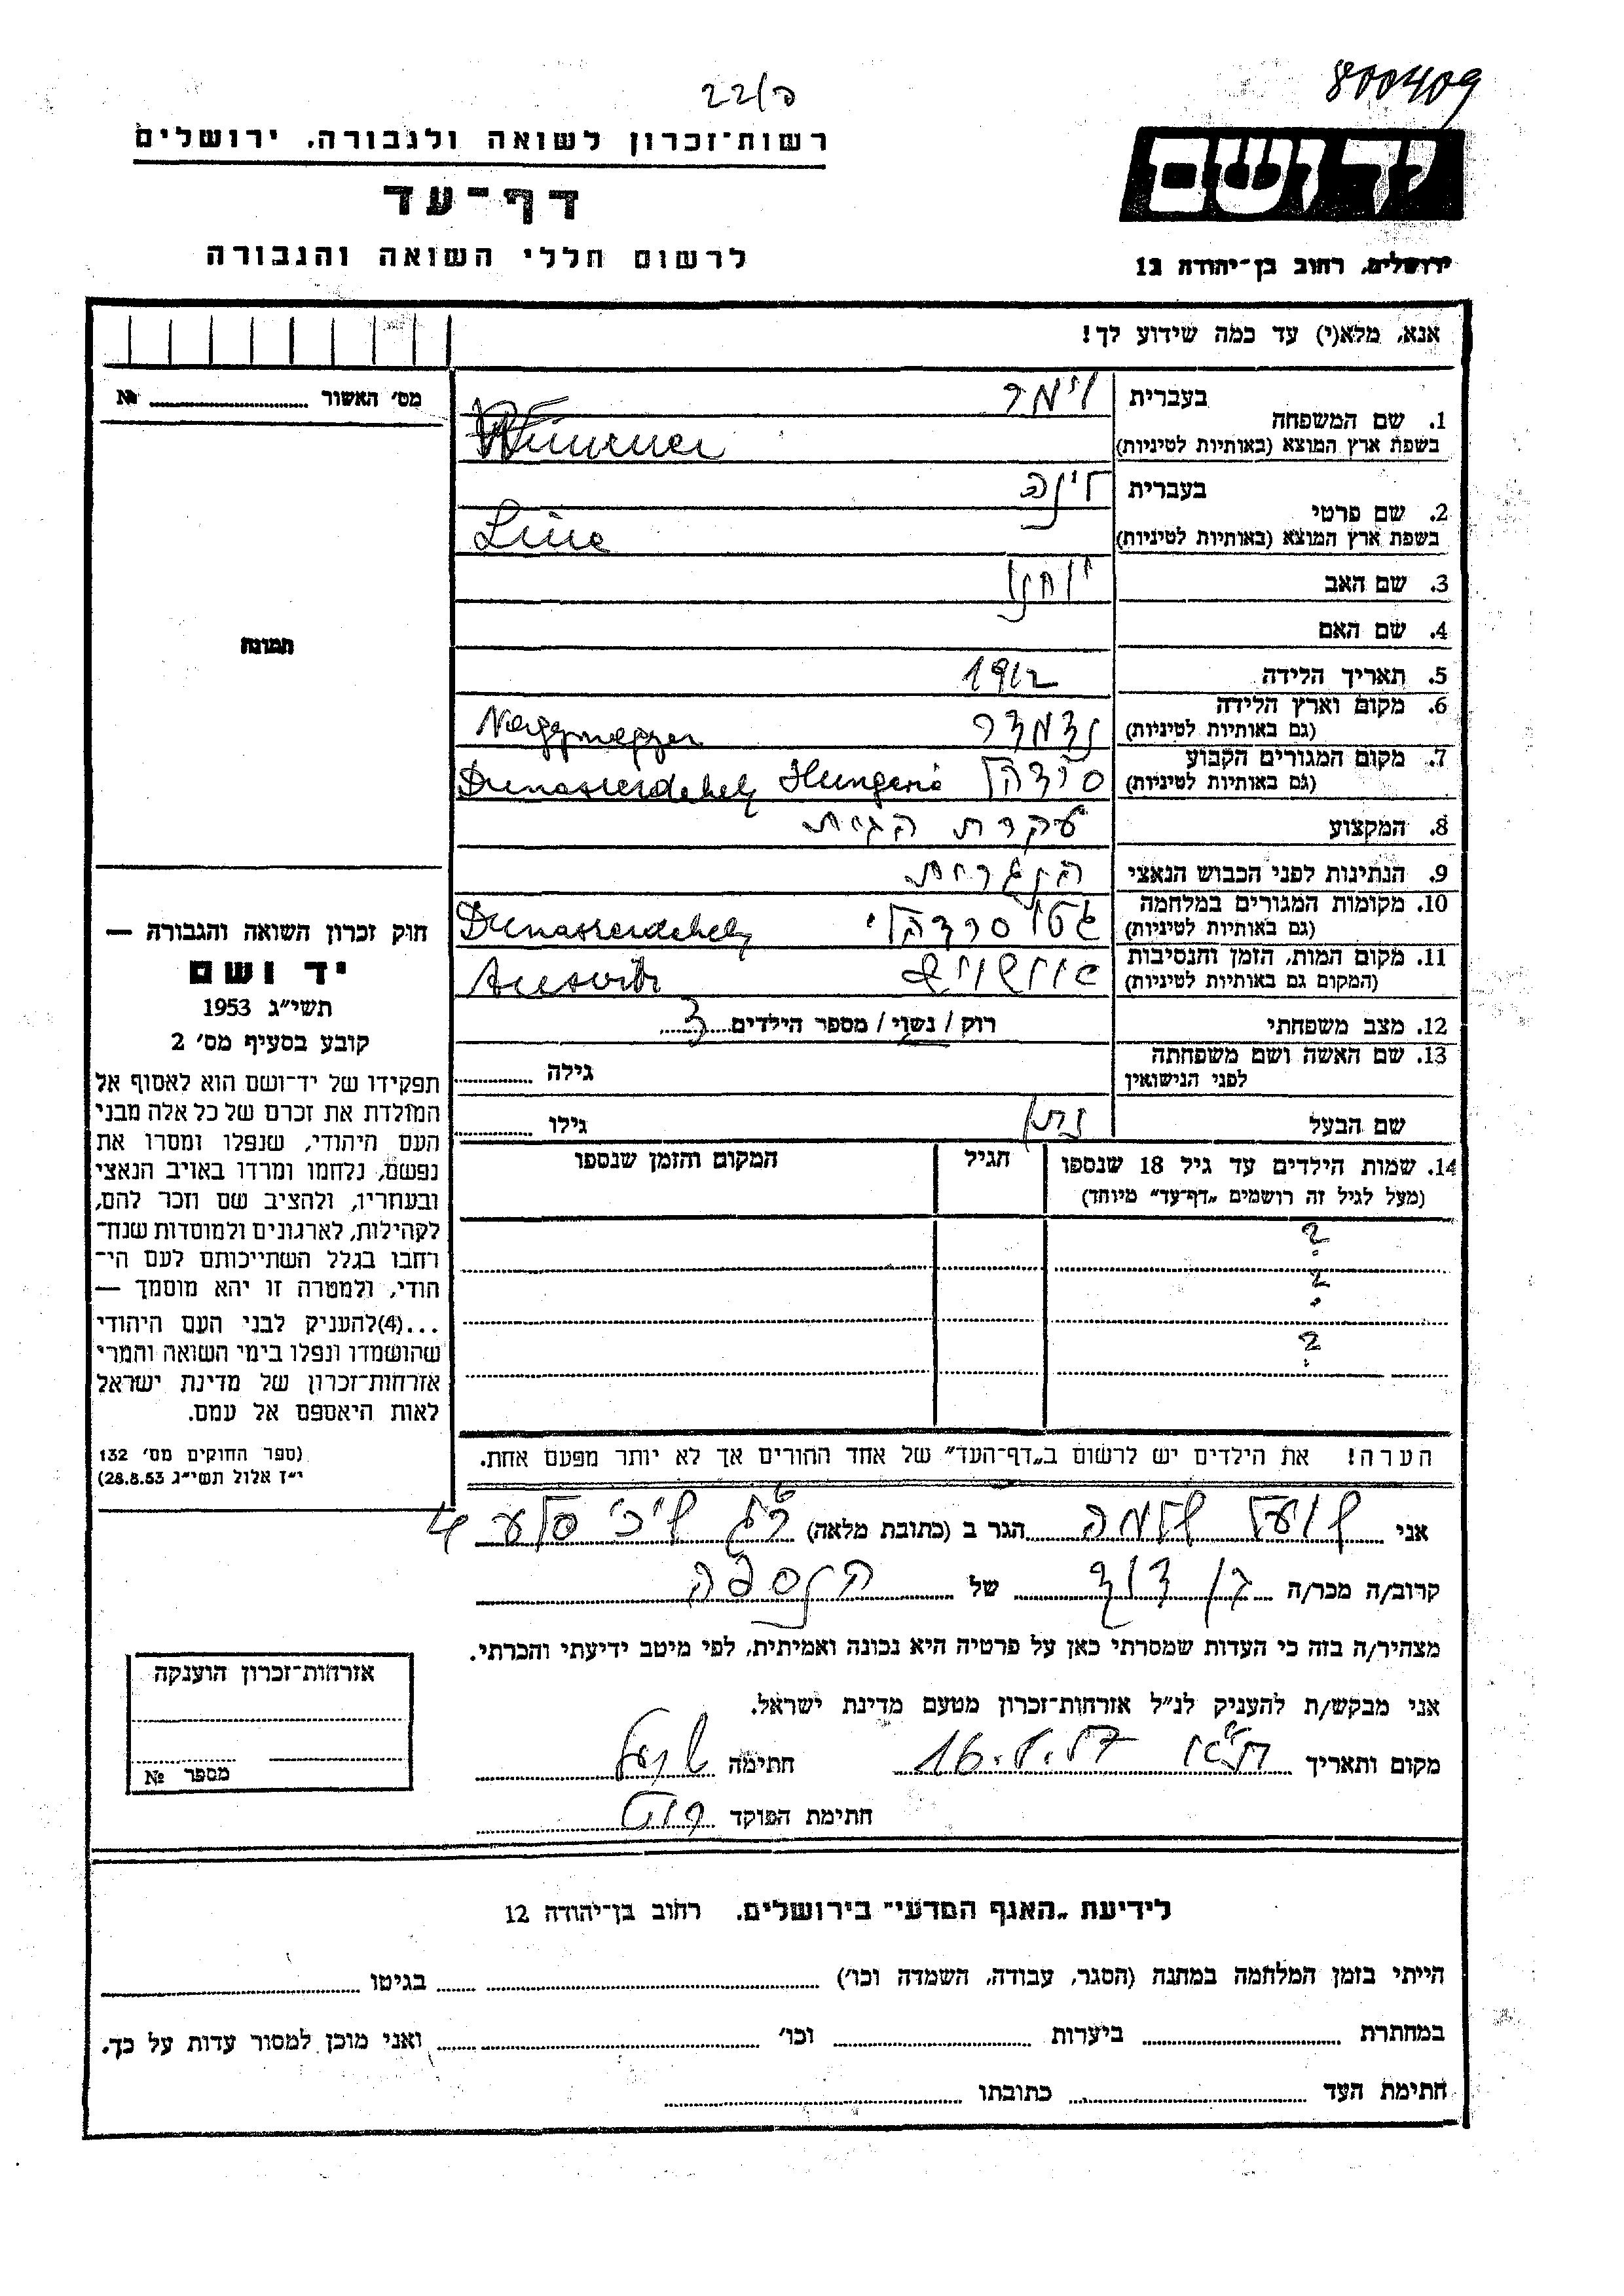 22/ה
800409
רשות־זכרון לשואה ולגבורה, ירושלים
יד ושם
דף־עד
לרשום חללי השואה והגבורה
ירושלים, רחוב בן־יהודה 12
אנא, מלא(י) עד כמה שידוע לך!
מס' האשור № ........
1. שם המשפחה
בעברית וימר
בשפת ארץ המוצא (באותיות לטיניות) Wimmer
2. שם פרטי
בעברית לינה
בשפת ארץ המוצא (באותיות לטיניות) Line
3. שם האב יוחנן
4. שם האם
5. תאריך הלידה 1912
6. מקום וארץ הלידה
(גם באותיות לטיניות) נדמדר Nagymegyer
7. מקום המגורים הקבוע
(גם באותיות לטיניות) סרדהל Dunaszerdahely Hungaria
8. המקצוע עקרת הבית
9. הנתינות לפני הכבוש הנאצי הונגרית
10. מקומות המגורים במלחמה
(גם באותיות לטיניות) גטו סרדהלי Dunaszerdahely
11. מקום המות, הזמן והנסיבות
(המקום גם באותיות לטיניות) אושוויץ Auswitz
12. מצב משפחתי רוק / נשוי / מספר הילדים 3
13. שם האשה ושם משפחתה
לפני הנישואין גילה ........
שם הבעל נתן גילו ........
14. שמות הילדים עד גיל 18 שנספו הגיל המקום והזמן שנספו
(מעל לגיל זה רושמים „דף־עד" מיוחד)
?
?
?
הערה! את הילדים יש לרשום ב„דף־העד" של אחד ההורים אך לא יותר מפעם אחת.
תמונה
חוק זכרון השואה והגבורה —
יד ושם
תשי"ג 1953
קובע בסעיף מס' 2
תפקידו של יד־ושם הוא לאסוף אל
המולדת את זכרם של כל אלה מבני
העם היהודי, שנפלו ומסרו את
נפשם, נלחמו ומרדו באויב הנאצי
ובעוזריו, ולהציב שם וזכר להם,
לקהילות, לארגונים ולמוסדות שנח־
רבו בגלל השתייכותם לעם הי־
הודי, ולמטרה זו יהא מוסמך —
...(4)להעניק לבני העם היהודי
שהושמדו ונפלו בימי השואה והמרי
אזרחות־זכרון של מדינת ישראל
לאות היאספם אל עמם.
(ספר החוקים מס' 132
י"ז אלול תשי"ג 28.8.53)
אני שועל שלמה הגר ב (כתובת מלאה) סלע 4
קרוב/ה מכר/ה בן דוד של הנספה
מצהיר/ה בזה כי העדות שמסרתי כאן על פרטיה היא נכונה ואמיתית, לפי מיטב ידיעתי והכרתי.
אני מבקש/ת להעניק לנ"ל אזרחות־זכרון מטעם מדינת ישראל.
מקום ותאריך ת"א 16. חתימה שועל
חתימת הפוקד
אזרחות־זכרון הוענקה
מספר №
לידיעת „האגף המדעי" בירושלים. רחוב בן־יהודה 12
הייתי בזמן המלחמה במחנה (הסגר, עבודה, השמדה וכו') ........ בגיטו ........
במחתרת ........ ביערות ........ וכו' ........ ואני מוכן למסור עדות על כך.
חתימת העד ........ כתובתו ........